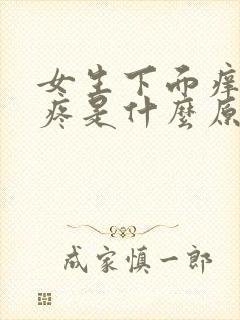 女生下面痒
疼是什麼原
成家慎一郎